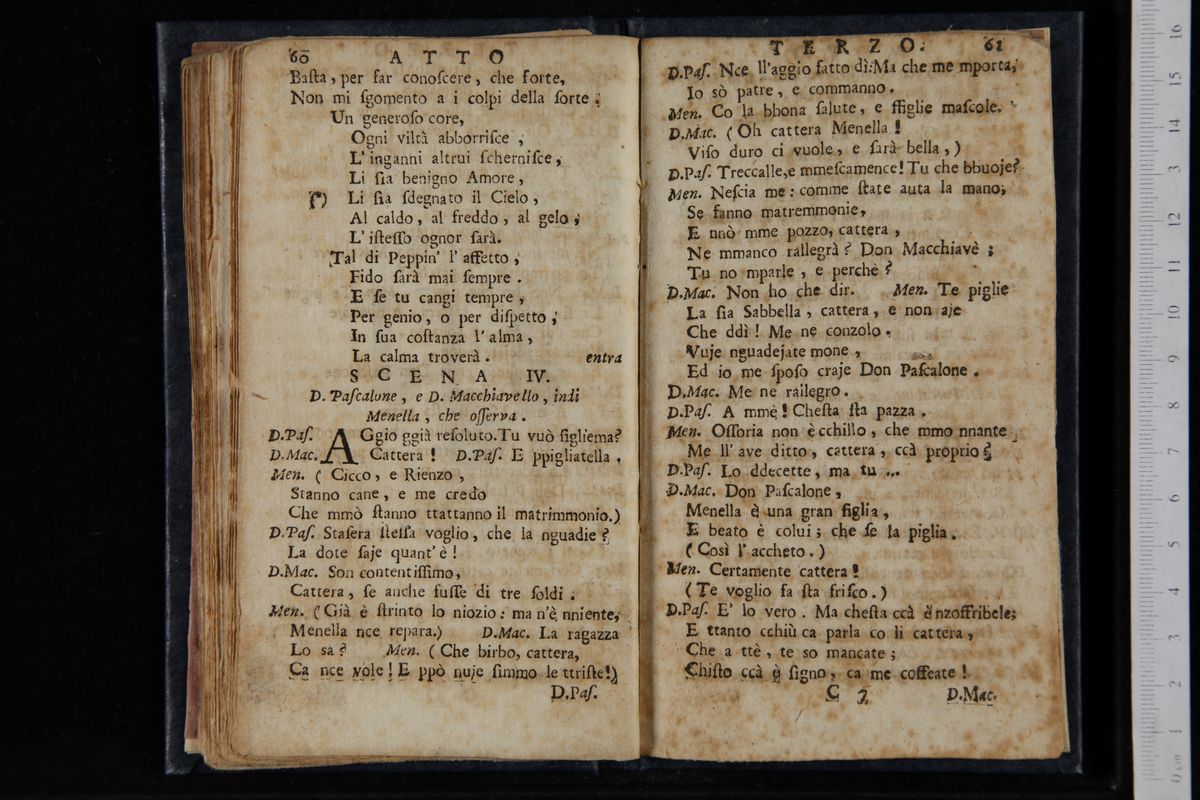 60 ATTO
Baſta, per far conoſcere, che forte,
Non mi ſgomento a i colpi della ſorte.
Un generoſo core,
Ogni viltà abborriſce,
L'inganni altrui ſcherniſce,
Li ſia benigno Amore,
(*) Li ſia ſdegnato il Cielo,
Al caldo, al freddo, al gelo,
L'iſteſſo ognor ſarà.
Tal di Peppin' l'affetto,
Fido ſarà mai ſempre.
E ſe tu cangi tempre,
Per genio, o per diſpetto,
In ſua coſtanza l'alma,
La calma troverà. entra
SCENA IV.
D. Paſcalone, e D. Macchiavello, indi
Menella, che oſſerva.
D.Paſ. AGgio ggià reſoluto. Tu vuò figliema?
D.Mac. Cattera! D.Paſ. E ppigliatella.
Men. (Cicco, e Rienzo,
Stanno cane, e me credo
Che mmò ſtanno ttattanno il matrimmonio.)
D.Paſ. Staſera ſteſſa voglio, che la nguadie?
La dote ſaje quant'è!
D.Mac. Son contentiſſimo,
Cattera, ſe anche fuſſe di tre ſoldi.
Men. (Già è ſtrinto lo niozio: ma n'è nniente,
Menella nce repara.) D.Mac. La ragazza
Lo sa? Men. (Che birbo, cattera,
Ca nce vole! E ppò nuje ſimmo le ttriſte!)
D.Paſ.
TERZO. 61
D.Paſ. Nce ll'aggio fatto dì: Ma che me mporta,
Io sò patre, e commanno.
Men. Co la bbona ſalute, e ffiglie maſcole.
D.Mac. (Oh cattera Menella!
Viſo duro ci vuole, e ſarà bella,)
D.Paſ. Treccalle, e mmeſcamence! Tu che bbuoje?
Men. Neſcia me: comme ſtate auta la mano,
Se fanno matremmonie,
E nnò mme pozzo, cattera,
Ne mmanco rallegrà? Don Macchiavè;
Tu no mparle, e perchè?
D.Mac. Non ho che dir. Men. Te piglie
La ſia Sabbella, cattera, e non aje
Che ddì! Me ne conzolo.
Vuje nguadejate mone,
Ed io me ſpoſo craje Don Paſcalone.
D.Mac. Me ne rallegro.
D.Paſ. A mmè! Cheſta ſta pazza.
Men. Oſſoria non è cchillo, che mmo nnante
Me ll'ave ditto, cattera, ccà proprio?
D.Paſ. Lo ddecette, ma tu ...
D.Mac. Don Paſcalone,
Menella è una gran figlia,
E beato è colui; che ſe la piglia.
(Così l'accheto.)
Men. Certamente cattera!
(Te voglio fa ſta friſco.)
D.Paſ. E' lo vero. Ma cheſta ccà è nzoffribele;
E ttanto cchiù ca parla co li cattera,
Che a ttè, te so mancate;
Chiſto ccà è ſigno, ca me coffeate!
C 2 D.Mac.
0 cm 1 2 3 4 5 6 7 8 9 10 11 12 13 14 15 16